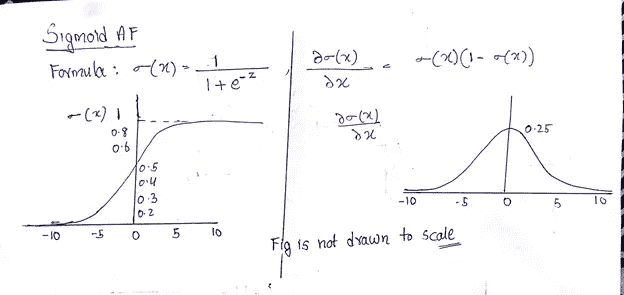 Sigmoid AF
Formula: σ(x) = 1 / 1 + e^-z , ∂σ(x) / ∂x = σ(x)(1 - σ(x))
σ(x) 1
0.8
0.6
0.5
0.4
0.3
0.2
-10 -5 0 5 10
∂σ(x) / ∂x
0.25
-10 -5 0 5 10
Fig is not drawn to scale